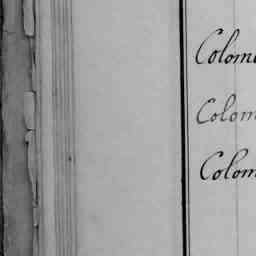 Colom
Colom
Colom